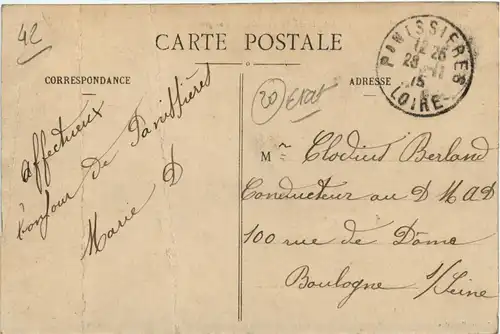 42
CARTE POSTALE
CORRESPONDANCE
ADRESSE
PANISSIERES
12 25
28 - 11
15
LOIRE
20
Etat
Affectueux
bonjour de Panissières
Marie D
Mr Clodius Berland
Conducteur au D M A D
100 rue de Dôme
Boulogne s/Seine